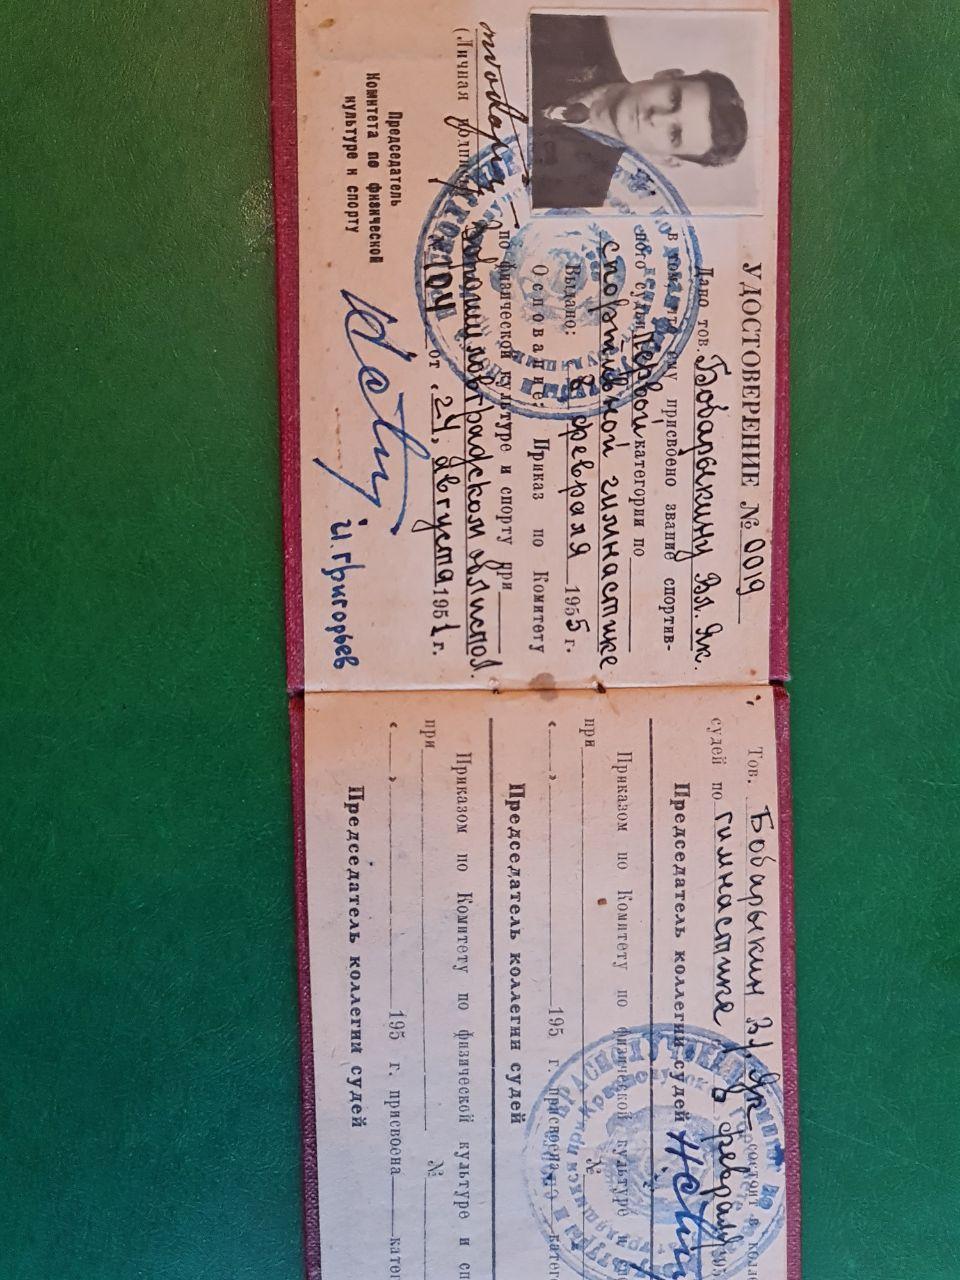 УДОСТОВЕРЕНИЕ № 0019
Дано тов. Бобарыкину Вл. Як.
в присвоено звание спортив-
ного судьи первой категории по
спортивной гимнастике
Выдано: 8 февраля 1955 г.
Основание: Приказ по Комитету
по физической культуре и спорту при
Ворошиловградском облиспол.
104 от „24„ августа 1951 г.
(Личная подпись)
Председатель
Комитета по физической
культуре и спорту
И. Григорьев
Тов. Бобарыкин Вл. Як. состоит в
судей по гимнастике 8 февраля 195
Председатель коллегии судей
Приказом по Комитету по физической культуре и
при №
„ „ 195 г. присвоена
Председатель коллегии судей
Приказом по Комитету по физической культуре и
при №
„ „ 195 г. присвоена
Председатель коллегии судей